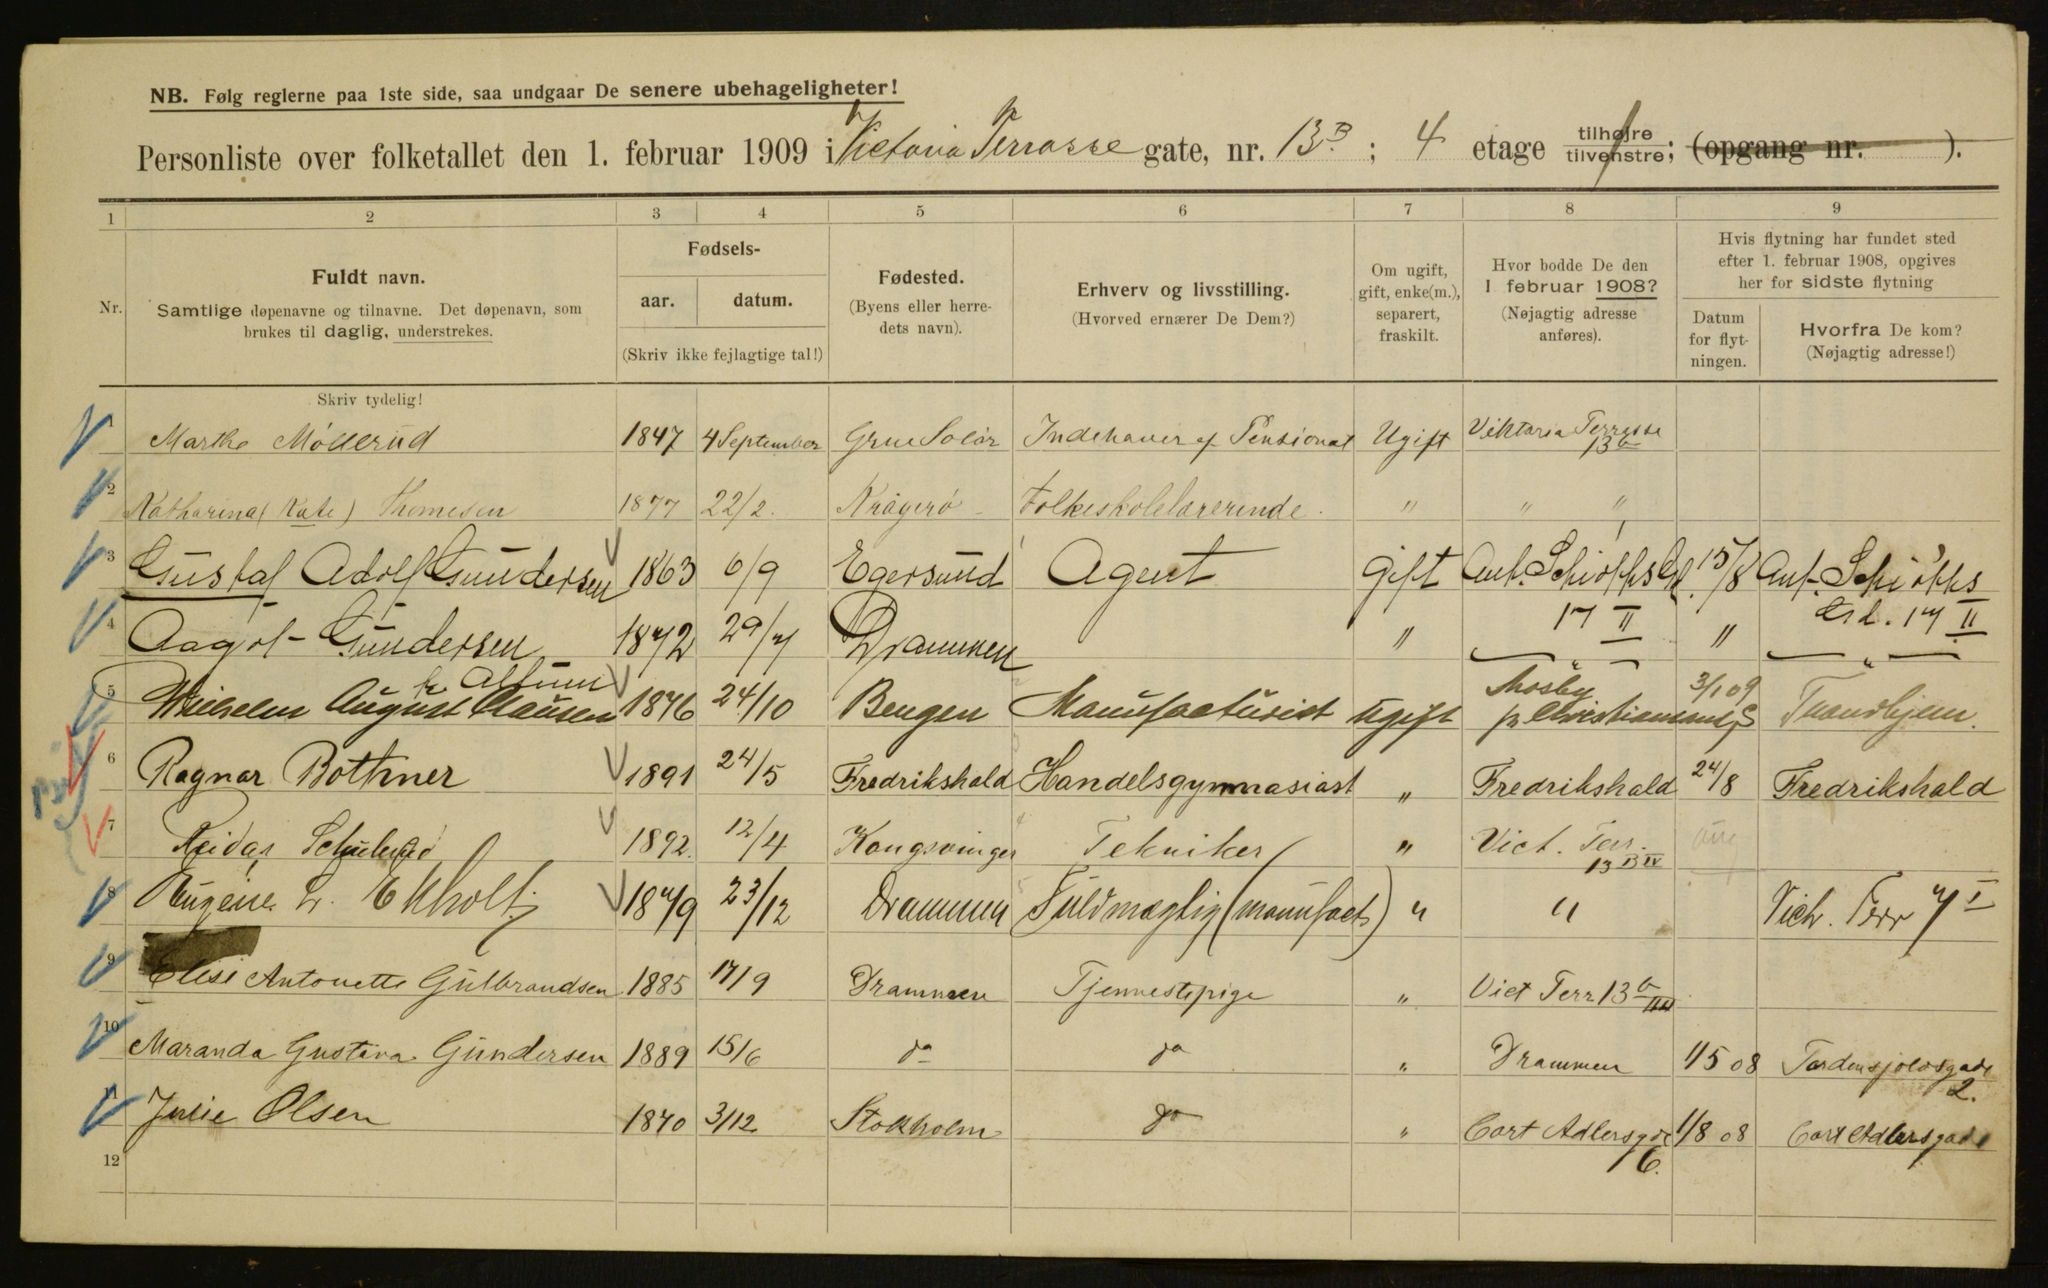 NB. Følg reglerne paa 1ste side, saa undgaar De senere ubehageligheter!
Personliste over folketallet den 1. februar 1909 i Victoria Terrasse gate, nr. 13B; 4 etage tilhøjre tilvenstre; (opgang nr. ).
1 2 3 4 5 6 7 8 9
Nr. Fuldt navn. Samtlige døpenavne og tilnavne. Det døpenavn, som brukes til daglig, understrekes.
Fødsels- aar. datum. (Skriv ikke fejlagtige tal!)
Fødested. (Byens eller herredets navn).
Erhverv og livsstilling. (Hvorved ernærer De Dem?)
Om ugift, gift, enke(m.), separert, fraskilt.
Hvor bodde De den 1 februar 1908? (Nøjagtig adresse anføres).
Hvis flytning har fundet sted efter 1. februar 1908, opgives her for sidste flytning
Datum for flytningen. Hvorfra De kom? (Nøjagtig adresse!)
Skriv tydelig!
1 Marthe Möllerud 1847 4 September Grue Solör Indehaver af Pensionat Ugift Viktoria Terrasse 13b
2 Katharina (Kate) Thomesen 1877 22/2. Kragerö Folkeskolelærerinde. " " "
3 Gustaf Adolf Gundersen 1863 6/9 Egersund Agent Gift Ant. Schiøthsgd. 17 II 15/8 Ant. Schiøths Gd. 17 II
4 Aagot Gundersen 1872 29/7 Drammen " " " "
5 Wilhelm August Clausen 1876 24/10 Bergen Manufacturist ugift Mosby pr Christianssand S 3/1 09 Trondhjem.
6 Ragnar Bothner 1891 24/5 Fredrikshald Handelsgymnasiast " Fredrikshald 24/8 Fredrikshald
7 Reidar 1892. 12/4 Kongsvinger Tekniker " Vict. Terr. 13 B IV
8 Eugène L. Ekholt. 1879 23/12 Drammen Fuldmægtig (manufact) " " Vict. Terr 7 I
9 Elise Antonette Gulbrandsen 1885 17/9 Drammen Tjenestepige " Vict Terr 13b IIII
10 Maranda Gustava Gundersen 1889 15/6 do do " Drammen 1/5 08 Tordensjoldsgade 2.
11 Julie Olsen 1870 3/12 Stokholm do " Cort Adlersgde 6. 1/8 08 Cort Adlersgade
12